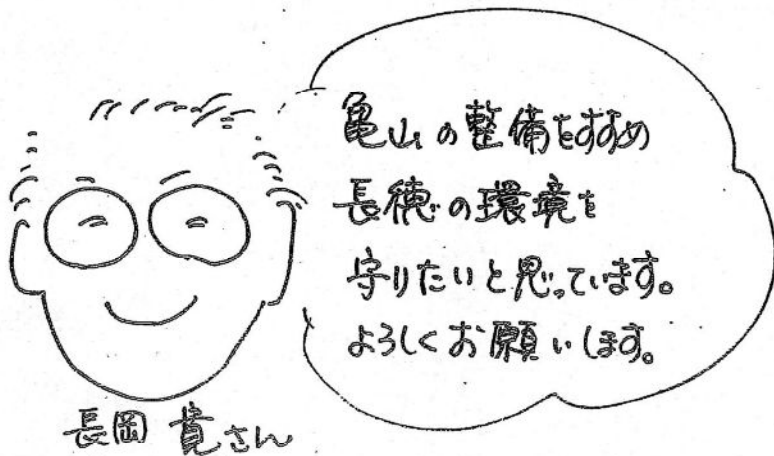 亀山の整備をすすめ
長穂の環境を
守りたいと思っています。
よろしくお願いします。
長岡 貴さん